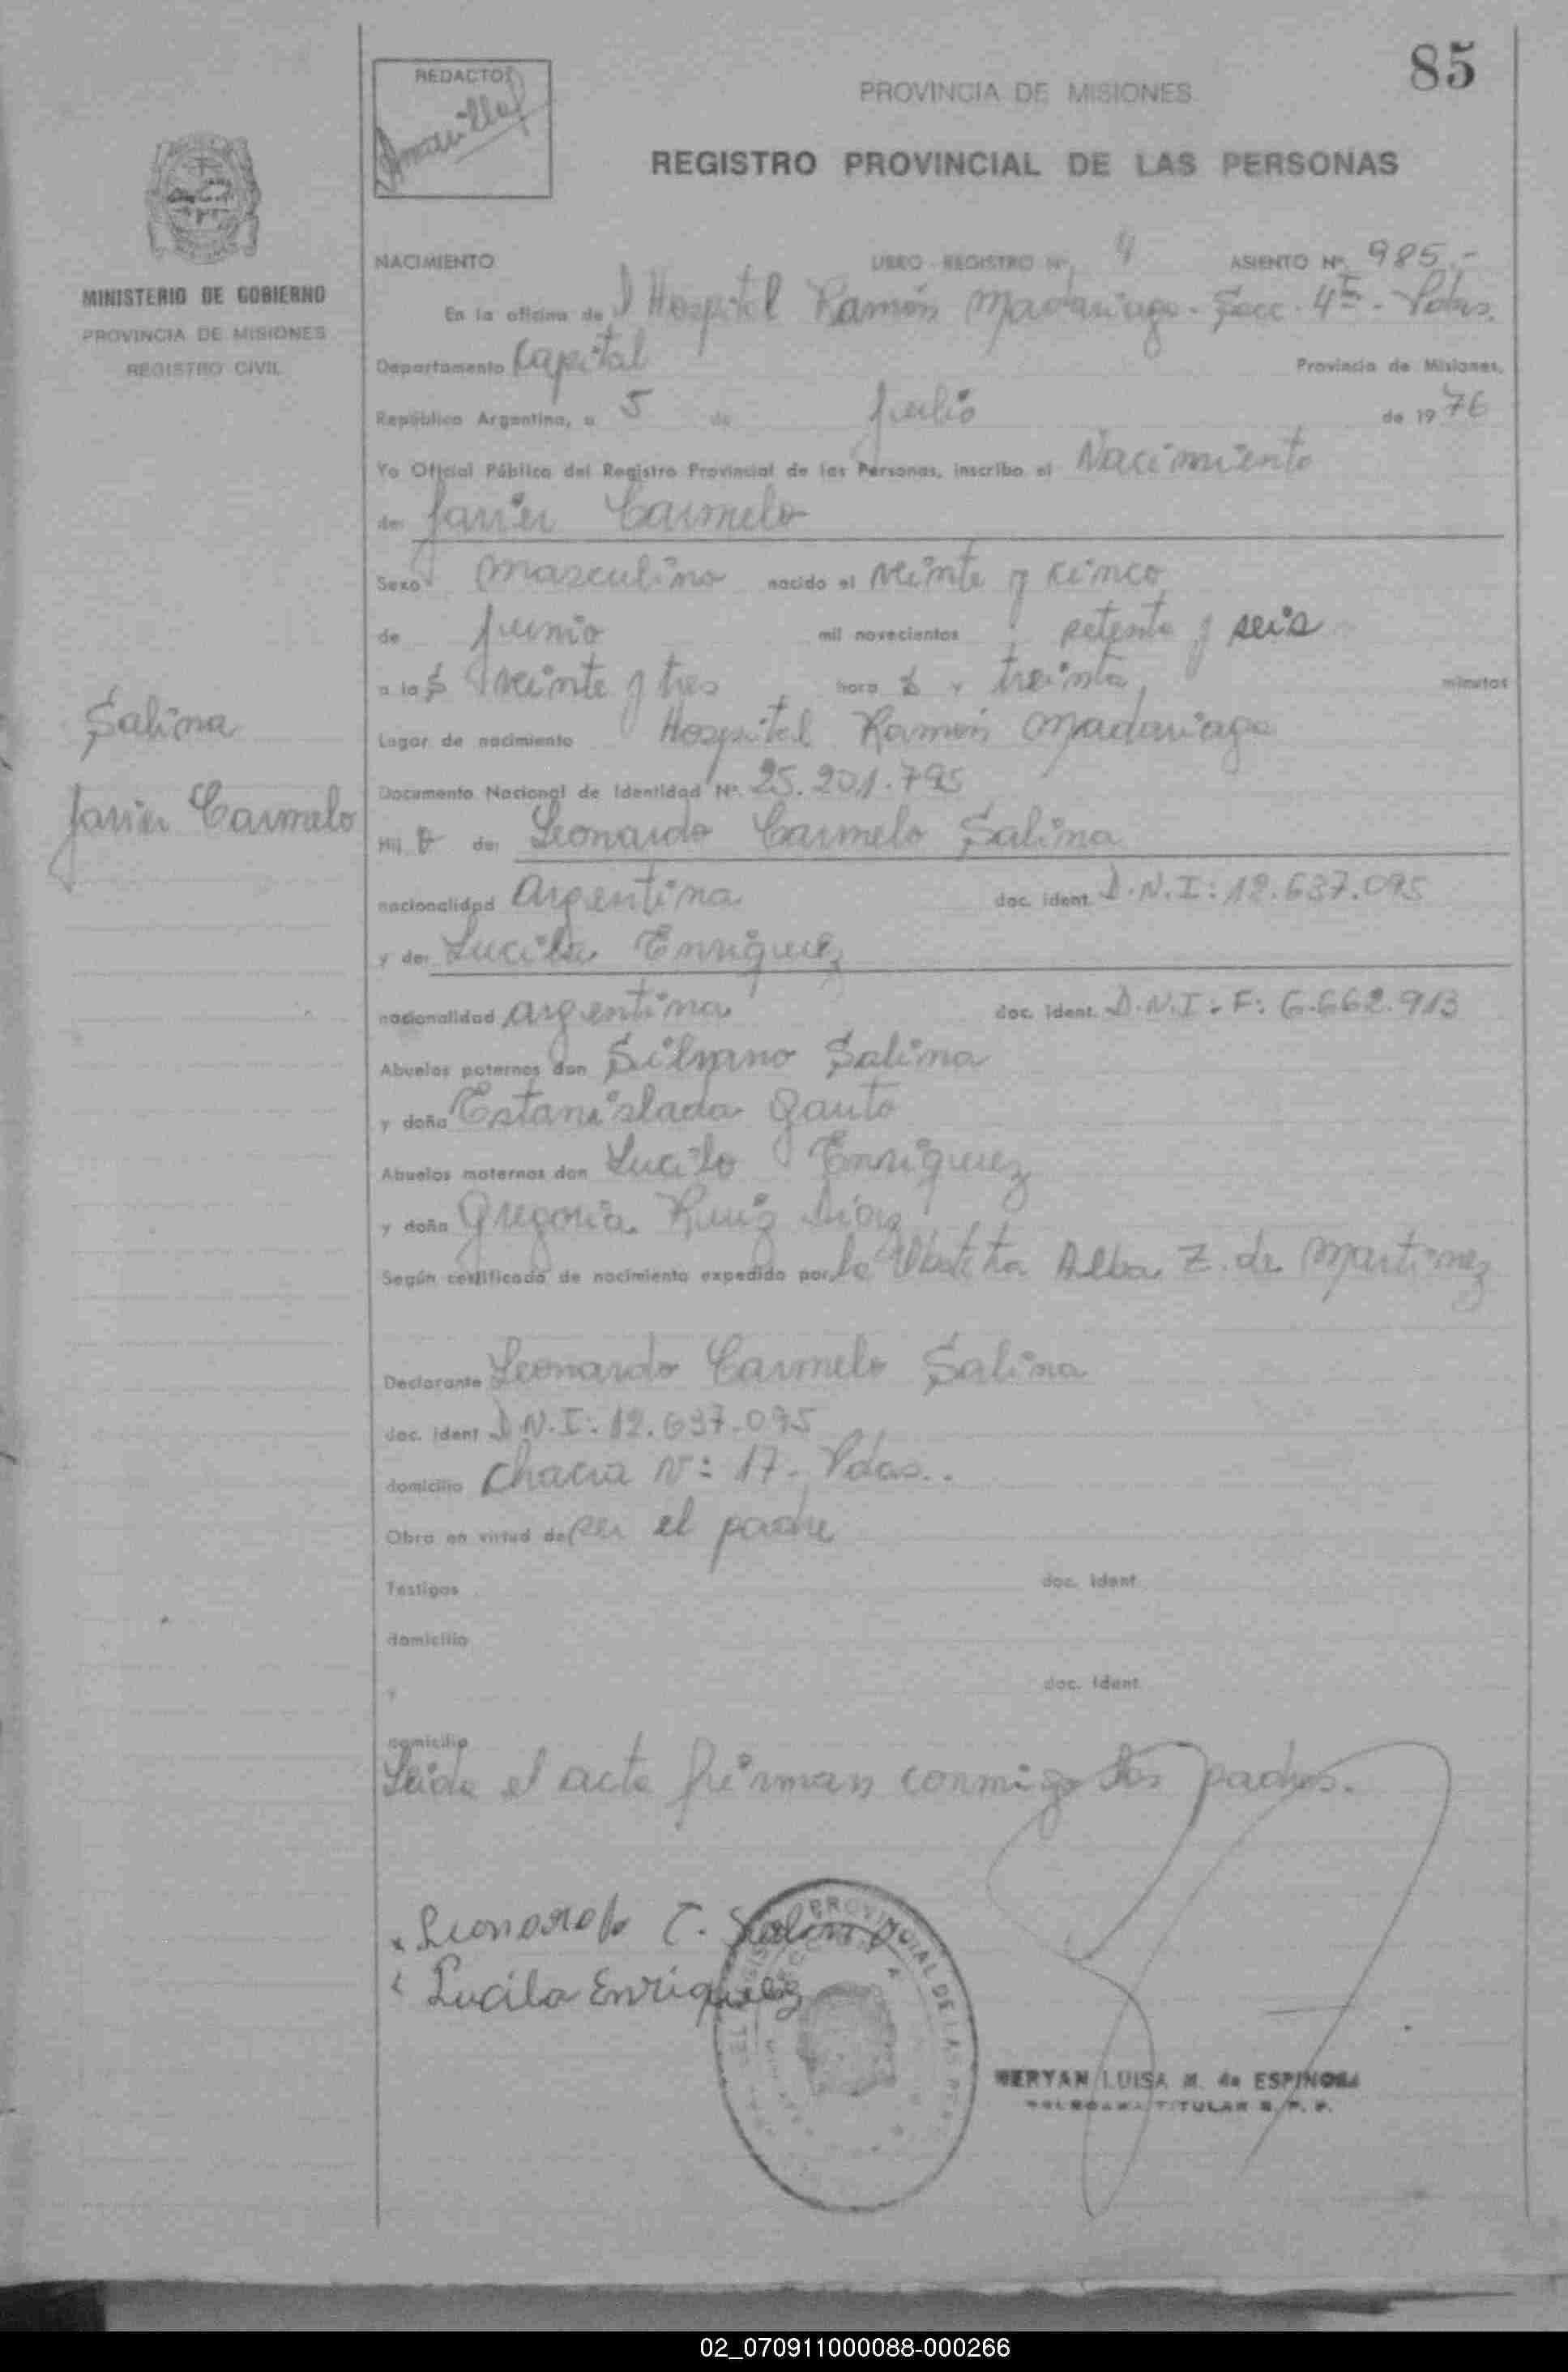 85
REDACTOR
PROVINCIA DE MISIONES
REGISTRO PROVINCIAL DE LAS PERSONAS
MINISTERIO DE GOBIERNO
PROVINCIA DE MISIONES
REGISTRO CIVIL
NACIMIENTO LIBRO REGISTRO Nº ASIENTO Nº 985.-
En la oficina del Hospital Ramón Madariaga - Secc. 4ta - Pdas.
Departamento Capital Provincia de Misiones,
República Argentina, a 5 de julio de 1976
Yo Oficial Público del Registro Provincial de las Personas, inscribo el Nacimiento
de: Javier Carmelo
Sexo masculino nacido el veinte y cinco
de junio mil novecientos setenta y seis
a las veinte y tres horas y treinta minutos
Lugar de nacimiento Hospital Ramón Madariaga
Salina
Javier Carmelo
Documento Nacional de Identidad Nº 25.201.795
Hijo de: Leonardo Carmelo Salina
nacionalidad Argentina doc. ident. D.N.I: 12.637.095
y de: Lucila Enriquez
nacionalidad argentina doc. ident. D.N.I - F: 6.662.913
Abuelos paternos don Silvano Salina
y doña Estanislada Gauto
Abuelos maternos don Lucilo Enriquez
y doña Gregoria Ruiz Diaz
Según certificado de nacimiento expedido por la Obstetra Alba Z. de Martinez
Declarante Leonardo Carmelo Salina
doc. ident D.N.I: 12.637.095
domicilio chacra Nº: 17 - Pdas..
Obra en virtud de ser el padre
Testigos doc. ident.
domicilio
y doc. ident.
domicilio
Leida el acta firman conmigo los padres.
Leonardo C. Salina
Lucila Enriquez
PROVINCIAL DE LAS
MERYAN LUISA M. de ESPINOSA
TITULAR R. P. P.
02_070911000088-000266